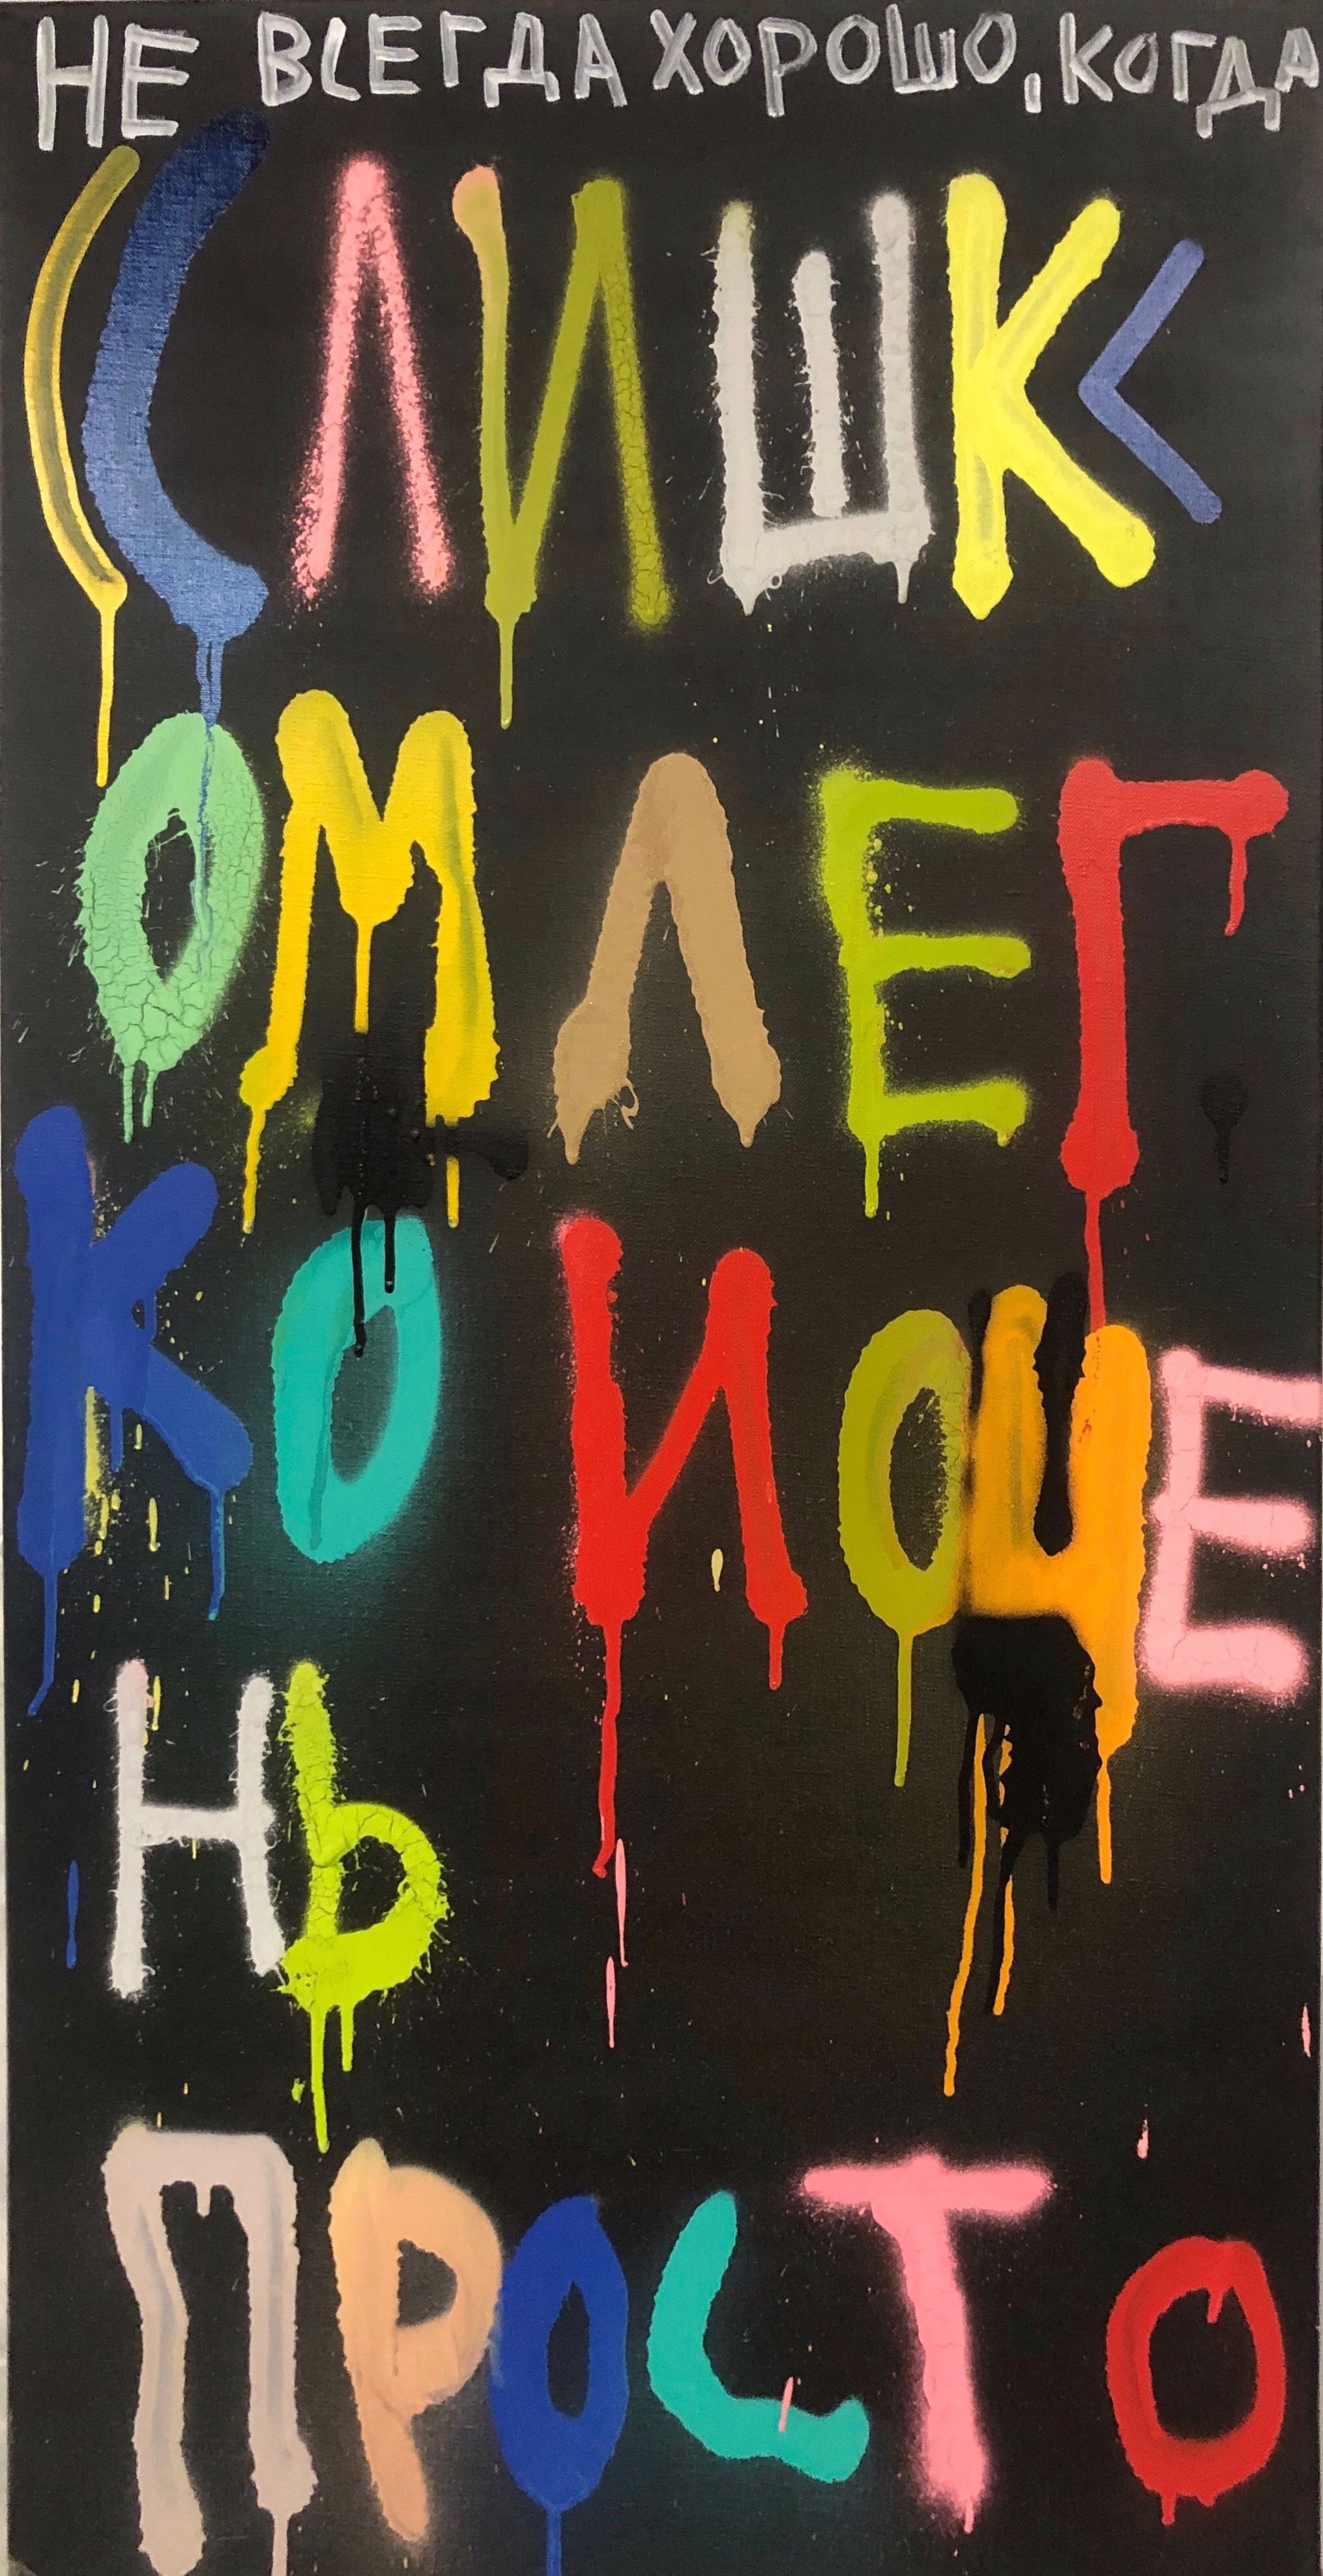 НЕ ВСЕГДА ХОРОШО, КОГДА
(СЛИШК<
ОМ ЛЕГ
КО И ОЧЕ
НЬ
ПРОСТО